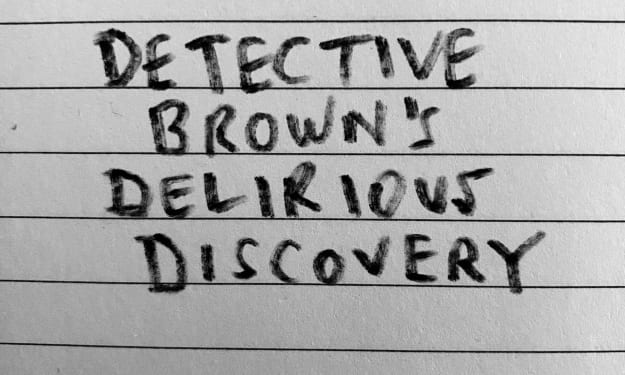 DETECTIVE
BROWN'S
DELIRIOUS
DISCOVERY